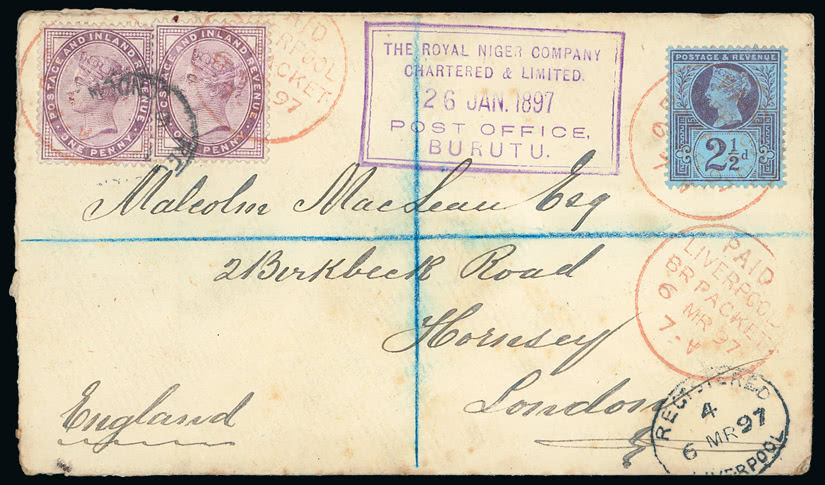 POSTAGE AND INLAND REVENUE
ONE PENNY
POSTAGE AND INLAND REVENUE
ONE PENNY
PAID
LIVERPOOL
PACKET
97
THE ROYAL NIGER COMPANY
CHARTERED & LIMITED.
26 JAN. 1897
POST OFFICE,
BURUTU.
POSTAGE & REVENUE
2½d
Malcolm MacLean Esq
2 Birkbeck Road
Hornsey
London
England
PAID
LIVERPOOL
BR PACKET
6 MR 97
REGISTERED
4
6 MR 97
LIVERPOOL